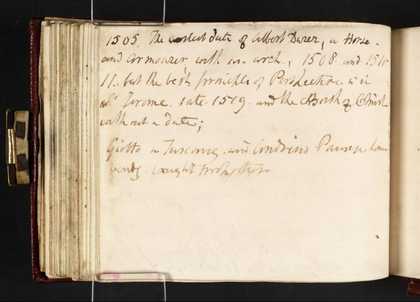 1505 The earliest date of Albert Durer, a Horse
and Armourer with an arch, 1508 and 1510
11. but the best principle of Perspective is in
St Jerome. date 1519 and the Birth of Christ
without a date;
Giotto in Tuscany and
caught